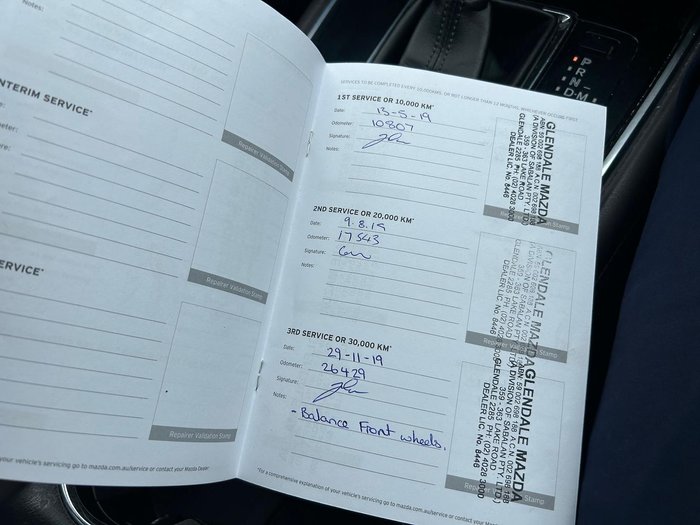 Notes:
INTERIM SERVICE*
Repairer Validation Stamp
Repairer Validation Stamp
ERVICE*
Repairer Validation Stamp
your vehicle's servicing go to mazda.com.au/service or contact your Mazda Dealer
SERVICES TO BE COMPLETED EVERY 10,000KMS, OR NOT LONGER THAN 12 MONTHS, WHICHEVER OCCURS FIRST
1ST SERVICE OR 10,000 KM*
Date: 13-5-19
Odometer: 10807
Signature:
Notes:
GLENDALE MAZDA
ABN 59 002 698 188 A.C.N. 002 698 188
A DIVISION OF SABALAN PTY. LTD.
359 - 363 LAKE ROAD
GLENDALE 2285 PH: (02) 4028 3000
DEALER LIC. No. 8446
Stamp
2ND SERVICE OR 20,000 KM*
Date: 9.8.19
Odometer: 17543
Signature:
Notes:
GLENDALE MAZDA
ABN 59 002 698 188 A.C.N. 002 698 188
(A DIVISION OF SABALAN PTY. LTD.)
359 - 363 LAKE ROAD
GLENDALE 2285 PH: (02) 4028 3000
DEALER LIC. No. 8446
Repairer Stamp
3RD SERVICE OR 30,000 KM*
Date: 29-11-19
Odometer: 26429
Signature:
Notes:
- Balance Front wheels.
GLENDALE MAZDA
ABN 59 002 698 188 A.C.N. 002 698 188
(A DIVISION OF SABALAN PTY. LTD.)
359 - 363 LAKE ROAD
GLENDALE 2285 PH: (02) 4028 3000
DEALER LIC. No. 8446
Stamp
*For a comprehensive explanation of your vehicle's servicing go to mazda.com.au/service or contact your Mazda
P
R
N
D-M